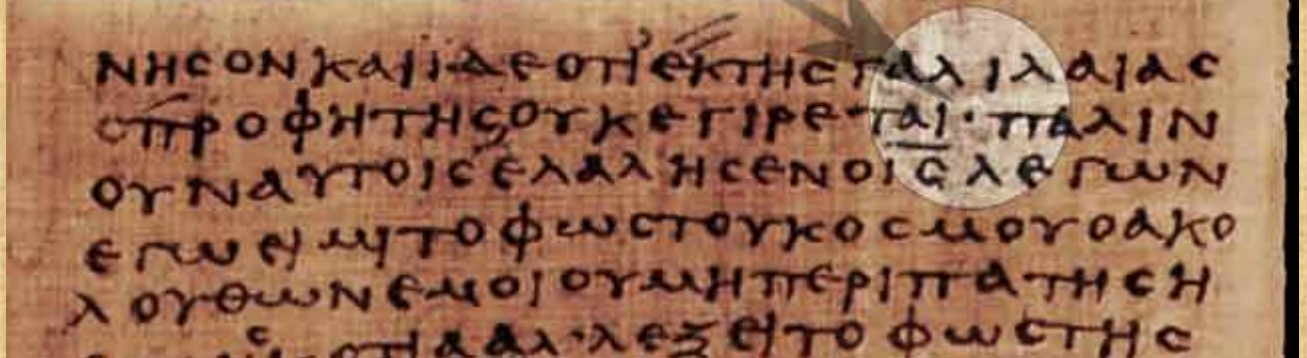 ΝΗϹΟΝΚΑΙΙΔΕΟΤΙΕΚΤΗϹΓΑΛΙΛΑΙΑϹ
ΟΠΡΟΦΗΤΗϹΟΥΚΕΓΙΡΕΤΑΙ·ΠΑΛΙΝ
ΟΥΝΑΥΤΟΙϹΕΛΑΛΗϹΕΝΟΙ̅Ϲ̅ΛΕΓΩΝ
ΕΓΩΕΙΜΙΤΟΦΩϹΤΟΥΚΟϹΜΟΥΟΑΚΟ
ΛΟΥΘΩΝΕΜΟΙΟΥΜΗΠΕΡΙΠΑΤΗϹΗ
ΟΤΙΑΑΛ·ΛΕΞΕΙΤΟΦΩϹΤΗϹ